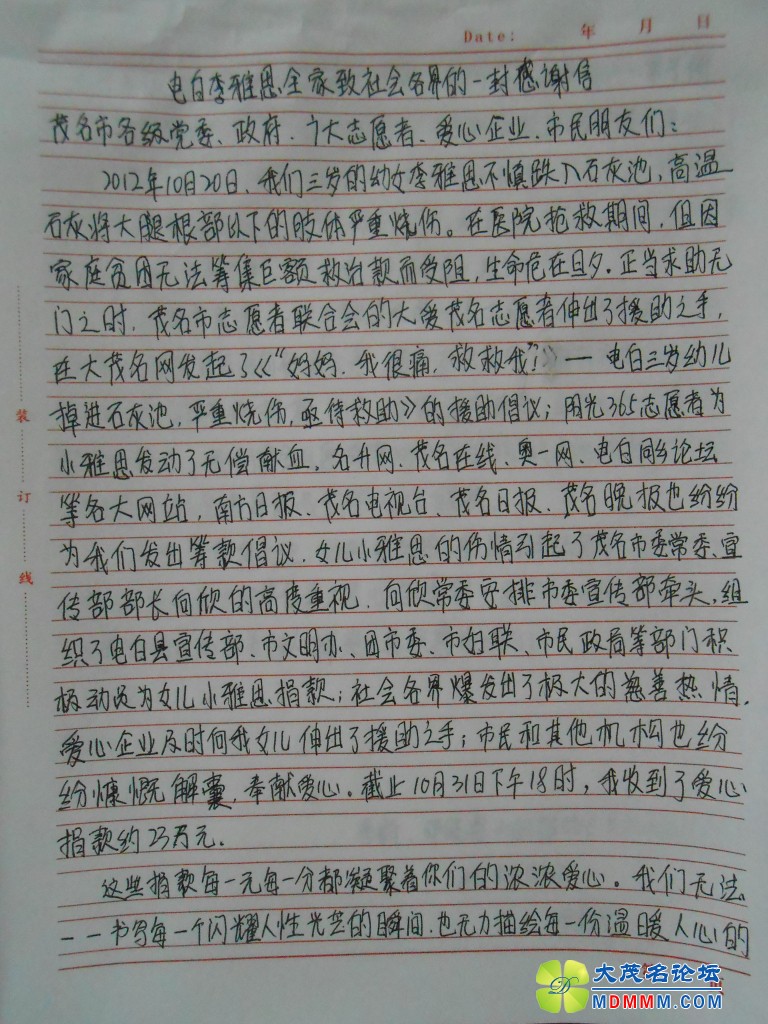 Date: 年 月 日
电白李雅思全家致社会各界的一封感谢信
茂名市各级党委、政府、广大志愿者、爱心企业、市民朋友们：
2012年10月20日，我们三岁的幼女李雅思不慎跌入石灰池，高温
石灰将大腿根部以下的肢体严重烧伤。在医院抢救期间，但因
家庭贫困无法筹集巨额救治款而受阻，生命危在旦夕。正当求助无
门之时，茂名市志愿者联合会的大爱茂名志愿者伸出了援助之手，
在大茂名网发起了《“妈妈，我很痛，救救我”！》—电白三岁幼儿
掉进石灰池，严重烧伤，亟待救助》的援助倡议；阳光365志愿者为
小雅思发动了无偿献血，名升网、茂名在线、奥一网、电白同乡论坛
等各大网站，南方日报、茂名电视台、茂名日报、茂名晚报也纷纷
为我们发出筹款倡议，女儿小雅思的伤情引起了茂名市委常委、宣
传部部长向欣的高度重视，向欣常委安排市委宣传部牵头，组
织了电白县宣传部、市文明办、团市委、市妇联、市民政局等部门积
极动员为女儿小雅思捐款；社会各界爆发出了极大的慈善热情，
爱心企业及时向我女儿伸出了援助之手；市民和其他机构也纷
纷慷慨解囊，奉献爱心。截止10月31日下午18时，我收到了爱心
捐款约23万元.
这些捐款每一元每一分都凝聚着你们的浓浓爱心。我们无法
一一书写每一个闪耀人性光芒的瞬间，也无力描绘每一份温暖人心的
装
订
线
大茂名论坛
MDMMM.COM